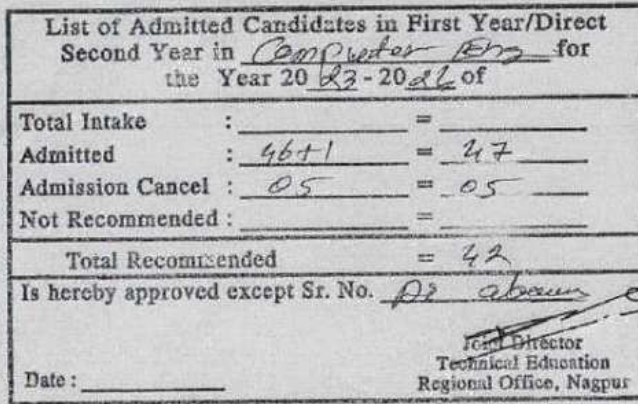 List of Admitted Candidates in First Year/Direct
Second Year in Computer Eng for
the Year 20 23 - 20 24 of
Total Intake : =
Admitted : 46+1 = 47
Admission Cancel : 05 = 05
Not Recommended : =
Total Recommended = 42
Is hereby approved except Sr. No. as above
Joint Director
Technical Education
Date : Regional Office, Nagpur